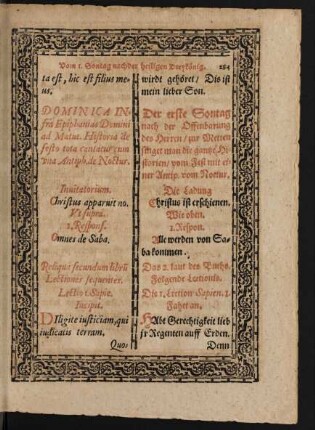 Vom 1. Sontag nach der heiligen Dreykönig. 184
ta est, hic est filius me-
us.
DOMINICA IN-
fra Epiphanias Domini
ad Matut. Historia de
festo tota cantatur cum
una Antiph. de Noctur.
Inuitatorium.
Christus apparuit no.
Vt supra.
1. Respons.
Omnes de Saba.
Reliqui secundum librũ
Lectiones sequenter.
Lectio 1. Sapie.
Incipit.
DIligite iusticiam, qui
iudicatis terram.
Quo-
wirdt gehöret / Dis ist
mein lieber Son.
Der erste Sontag
nach der Offenbarung
des Herren / zur Metten
singet man die gantze Hi-
storien / vom Fest mit ei-
ner Antip. vom Nottur.
Die Ladung
Christus ist erschienen.
Wie oben.
1. Respon.
Alle werden von Sa-
ba kommen.
Das 2. laut des Buchs.
Folgende Lectiones.
Die 1. Lection Sapien. 1.
Fahet an.
HAbt Gerechtigkeit lieb
jr Regenten auff Erden.
Denn